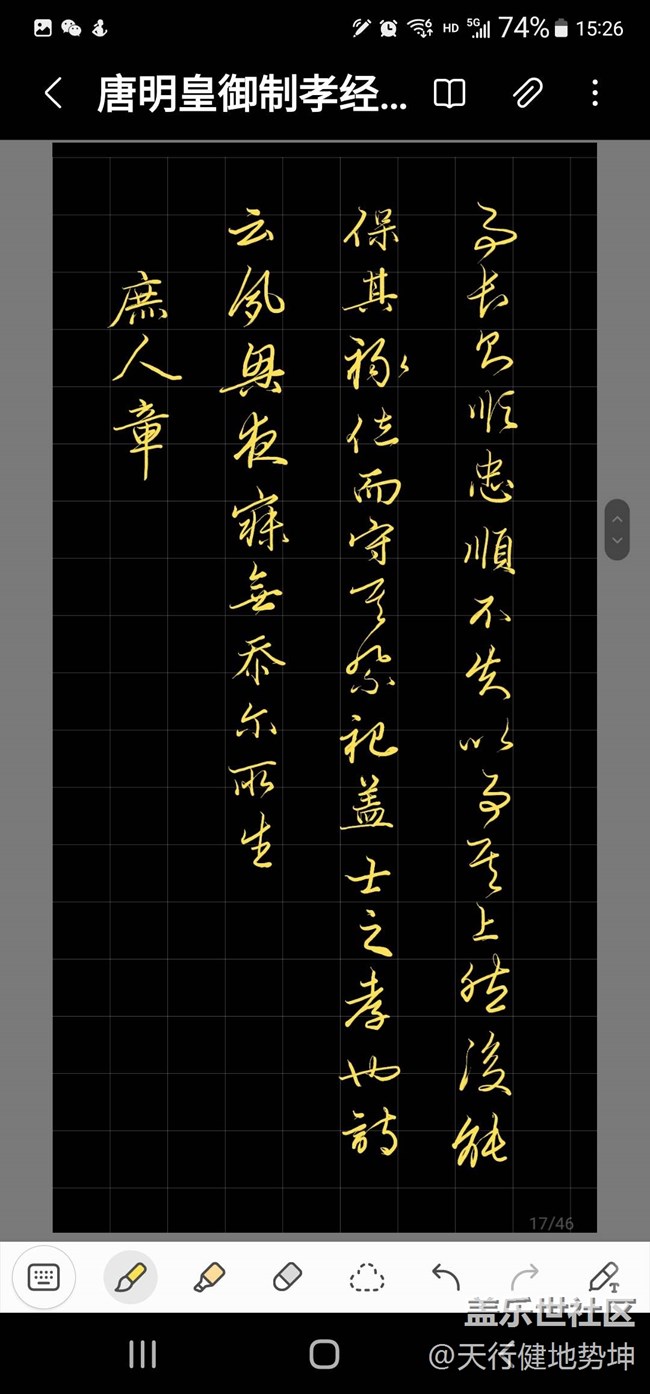 74% 15:26
唐明皇御制孝经...
事长则顺忠順不失以事其上然後能
保其禄位而守其祭祀盖士之孝也詩
云夙興夜寐無忝尔所生
庶人章
17/46
盖乐世社区
@天行健地势坤